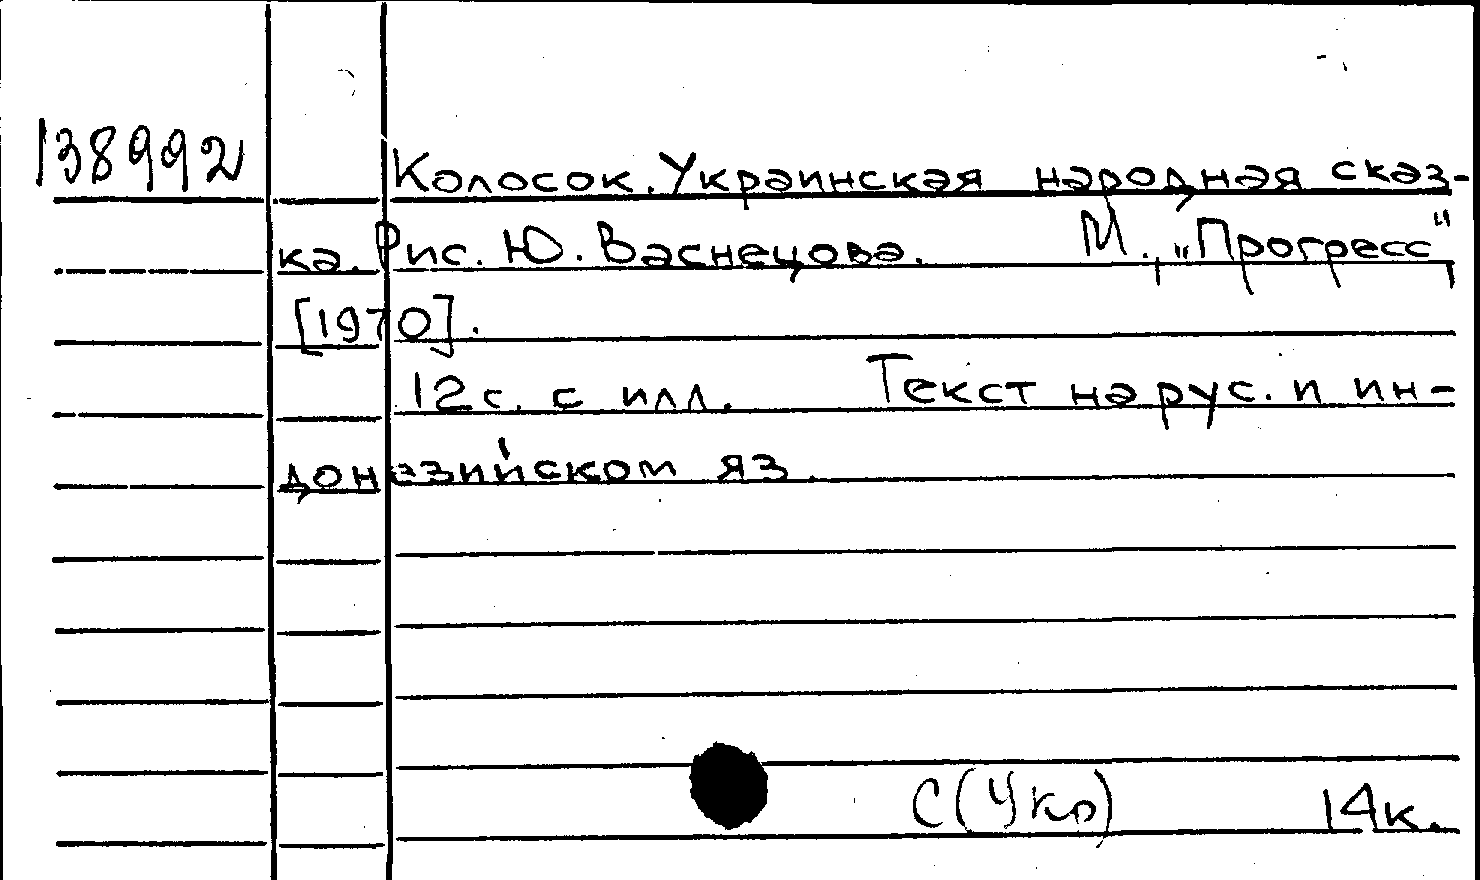 138992 Колосок. Украинская народная сказ-
ка. Рис. Ю. Васнецова. М., „Прогресс",
[1970].
12 с. с илл. Текст на рус. и ин-
донезийском яз.
С(Укр) 14к.